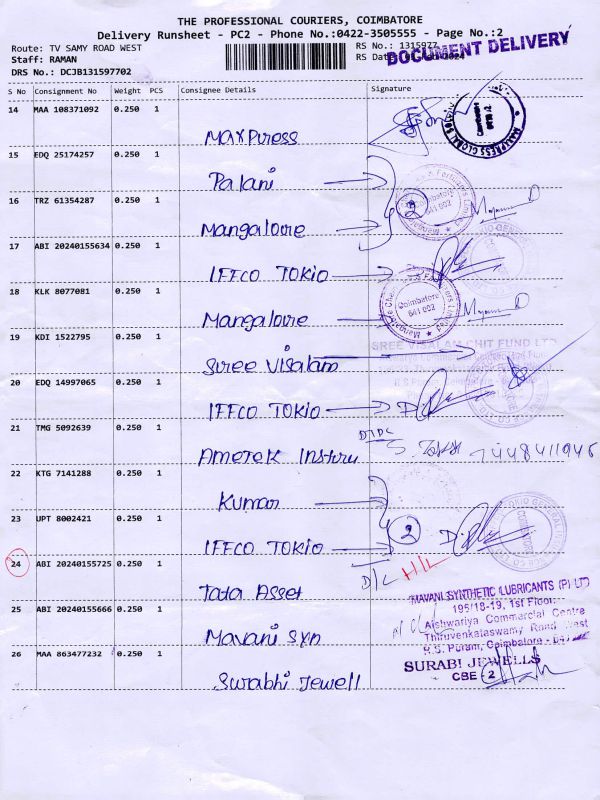 THE PROFESSIONAL COURIERS, COIMBATORE
Delivery Runsheet - PC2 - Phone No.:0422-3505555 - Page No.:2
Route: TV SAMY ROAD WEST
Staff: RAMAN
DRS No.: DCJB131597702
RS No.: 1315977
RS Date
DOCUMENT DELIVERY
S No Consignment No Weight PCS Consignee Details Signature
14 MAA 108371092 0.250 1
Maxpress
15 EDQ 25174257 0.250 1
Palani
16 TRZ 61354287 0.250 1
Mangalore 2
17 ABI 20240155634 0.250 1
IFFCO TOKIO
18 KLK 8077081 0.250 1
Mangalore
Coimbatore
641 002
19 KDI 1522795 0.250 1
SREE VISALAM CHIT FUND LTD
Sree Visalam
20 EDQ 14997065 0.250 1
IFFCO TOKIO
21 TMG 5092639 0.250 1
DTDC
Ametek Instru
22 KTG 7141288 0.250 1
Kumar
23 UPT 8002421 0.250 1
IFFCO TOKIO 2
24 ABI 20240155725 0.250 1
D/L H/L
Tata Asset
25 ABI 20240155666 0.250 1
Mavani Syn
MAVANI SYNTHETIC LUBRICANTS (P) LTD
195/18-19, 1st Floor,
Aishwariya Commercial Centre
Thiruvenkataswamy Road West
R.S. Puram, Coimbatore
26 MAA 863477232 0.250 1
Surabhi Jewell
SURABI JEWELLS
CBE - 2